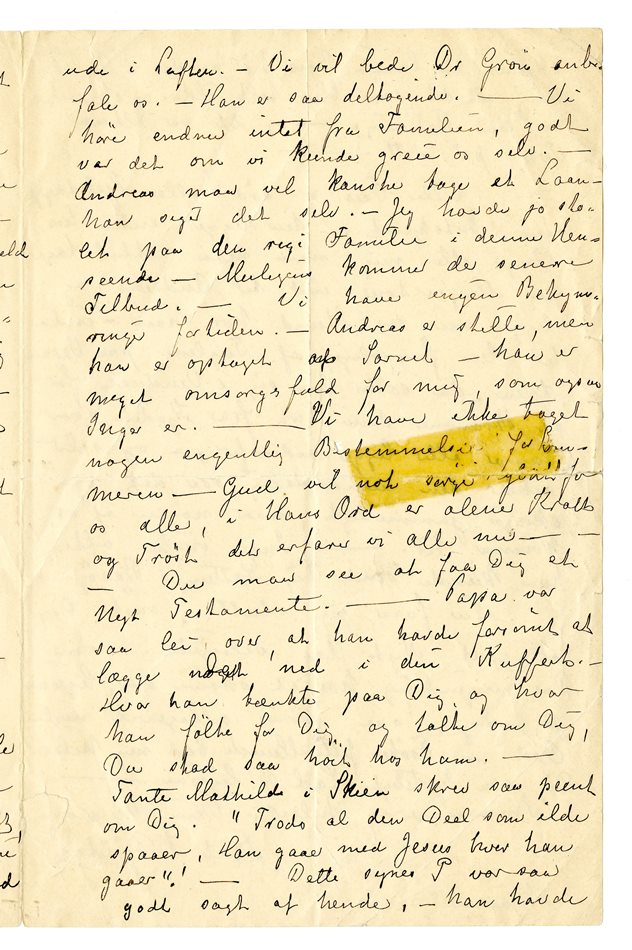 ude i Luften. – Vi vil bede Dr Grøn anbe-
fale os. – Han er saa deltagende. — Vi
høre endnu intet fra Familien, godt
var det om vi kunde greie os selv. –
Andreas maa vel kanske tage et Laan –
han siger det selv. – Jeg havde jo sto-
let paa den rige Familie i denne Hen-
seende – Muligens kommer de senere
Tilbud. — Vi have ingen Bekym-
ringer for tiden. – Andreas er stille, men
han er optaget af Savnet – han er
meget omsorgsfuld for mig, som ogsaa
Inger er. — Vi have ikke taget
nogen egentlig Bestemmelse for Som-
meren – Gud vil nok sørge for
os alle, i Hans Ord er alene Kraft
og Trøst det erfarer vi alle nu — –
– Du maa see at faa Dig et
Nyt Testamente. — Papa var
saa lei over, at han havde forsømt at
lægge det ned i din Kuffert. –
Hvor han tænkte paa Dig, og hvor
han følte for Dig, og talte om Dig,
Du stod saa høit hos ham. —
Tante Mathilde i Skien skrev saa peent
om Dig. "Trods al den Deel som ilde
spaaer, Han gaae med Jesus hvor han
gaaer"! — Dette synes P var saa
godt sagt af hende, – han havde